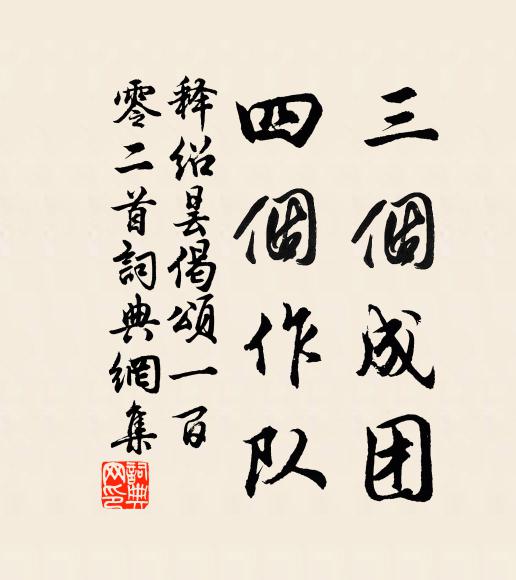 三個成团
四個作队
释绍昙偈颂一百
零二首詞典網集
詞典
网印